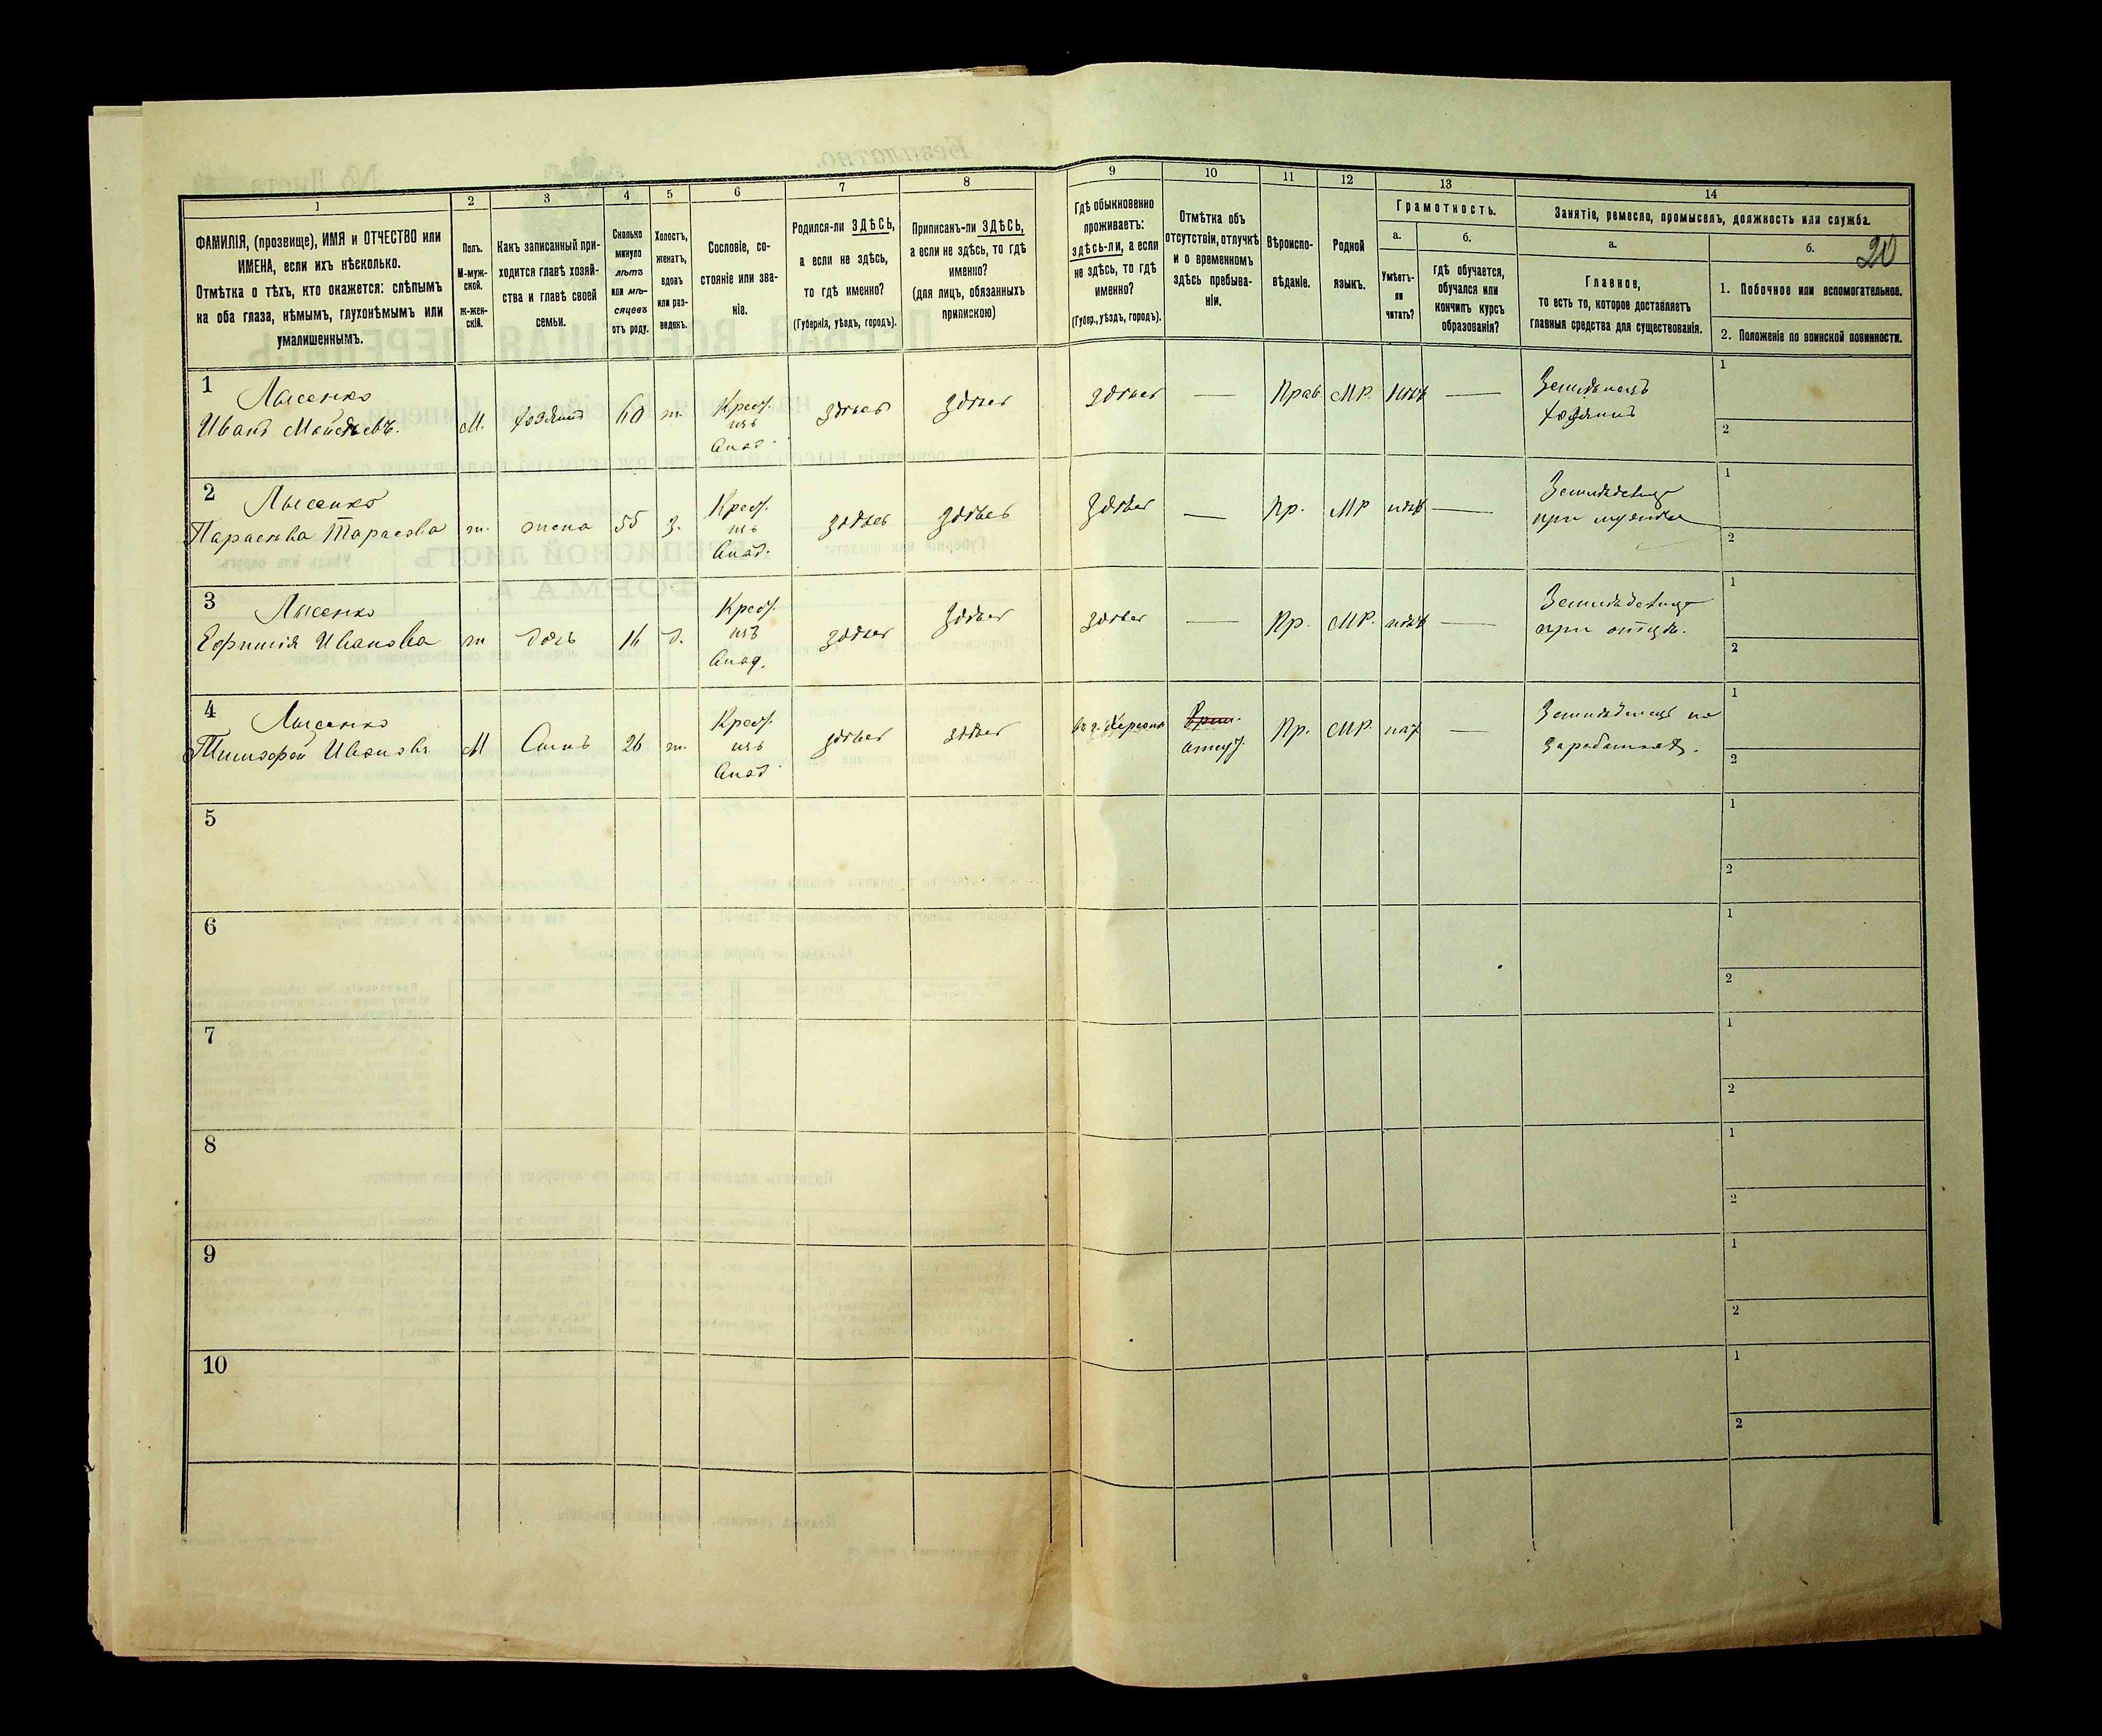 1 2 3 4 5 6 7 8 9 10 11 12 13 14
ФАМИЛІЯ, (прозвище), ИМЯ и ОТЧЕСТВО или
ИМЕНА, если ихъ нѣсколько.
Отмѣтка о тѣхъ, кто окажется: слѣпымъ
на оба глаза, нѣмымъ, глухонѣмымъ или
умалишеннымъ.
Полъ.
М-муж-
ской.
Ж-жен-
скій.
Какъ записанный при-
ходится главѣ хозяй-
ства и главѣ своей
семьи.
Сколько
минуло
лѣтъ
или мѣ-
сяцевъ
отъ роду.
Холостъ,
женатъ,
вдовъ
или раз-
веденъ.
Сословіе, со-
стояніе или зва-
ніе.
Родился-ли ЗДѢСЬ,
а если не здѣсь,
то гдѣ именно?
(Губернія, уѣздъ, городъ).
Приписанъ-ли ЗДѢСЬ,
а если не здѣсь, то гдѣ
именно?
(для лицъ, обязанныхъ
припискою)
Гдѣ обыкновенно
проживаетъ:
здѣсь-ли, а если
не здѣсь, то гдѣ
именно?
(Губер., уѣздъ, городъ).
Отмѣтка объ
отсутствіи, отлучкѣ
и о временномъ
здѣсь пребыва-
ніи.
Вѣроиспо-
вѣданіе.
Родной
языкъ.
Грамотность.
а.
Умѣетъ-
ли
читать?
б.
гдѣ обучается,
обучался или
кончилъ курсъ
образованія?
Занятіе, ремесло, промыселъ, должность или служба.
а.
Главное,
то есть то, которое доставляетъ
главныя средства для существованія.
б.
20
1. Побочное или вспомогательное.
2. Положеніе по воинской повинности.
1
Лысенко
Иванъ
М. хозяинъ 60 ж. Крест. изъ здѣсь здѣсь здѣсь — Прав МР. нѣтъ —
Земледѣлецъ
хозяинъ
1
2
2
Лысенко
Параскева Тарасова
ж. жена 55 з. Крест. изъ здѣсь здѣсь здѣсь — Пр. МР нѣтъ —
при мужѣ
1
2
3
Лысенко
Ефимія Иванова
ж дочь 16 д. Крест. изъ здѣсь здѣсь здѣсь — Пр. МР. нѣтъ —
при отцѣ.
1
2
4
Лысенко
Тимофей Ивановъ
М Сынъ 26 ж. Крест. изъ здѣсь здѣсь въ г. Херсонѣ отсут. Пр. МР. нѣт —
Земледѣлецъ на
заработкахъ.
1
2
5
1
2
6
1
2
7
1
2
8
1
2
9
1
2
10
1
2